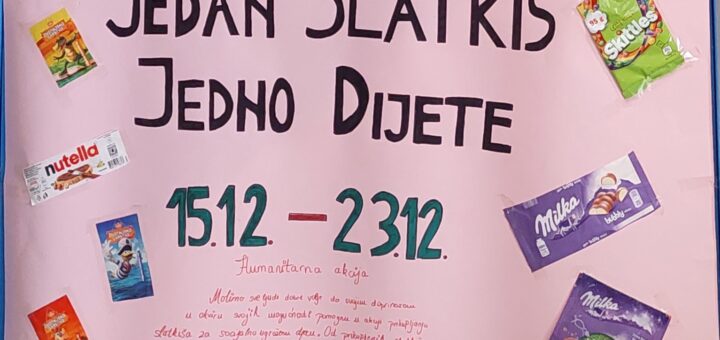 JEDAN SLATKIŠ
JEDNO DIJETE
15.12. – 23.12.
Humanitarna akcija
Molimo sve ljude dobre volje da svojim doprinosom
u okviru svojih mogućnosti pomognu u akciji prikupljanja
slatkiša za socijalno ugroženu djecu. Od prikupljenih
95 g
Skittles
nutella
Milka
bubbly
Milka